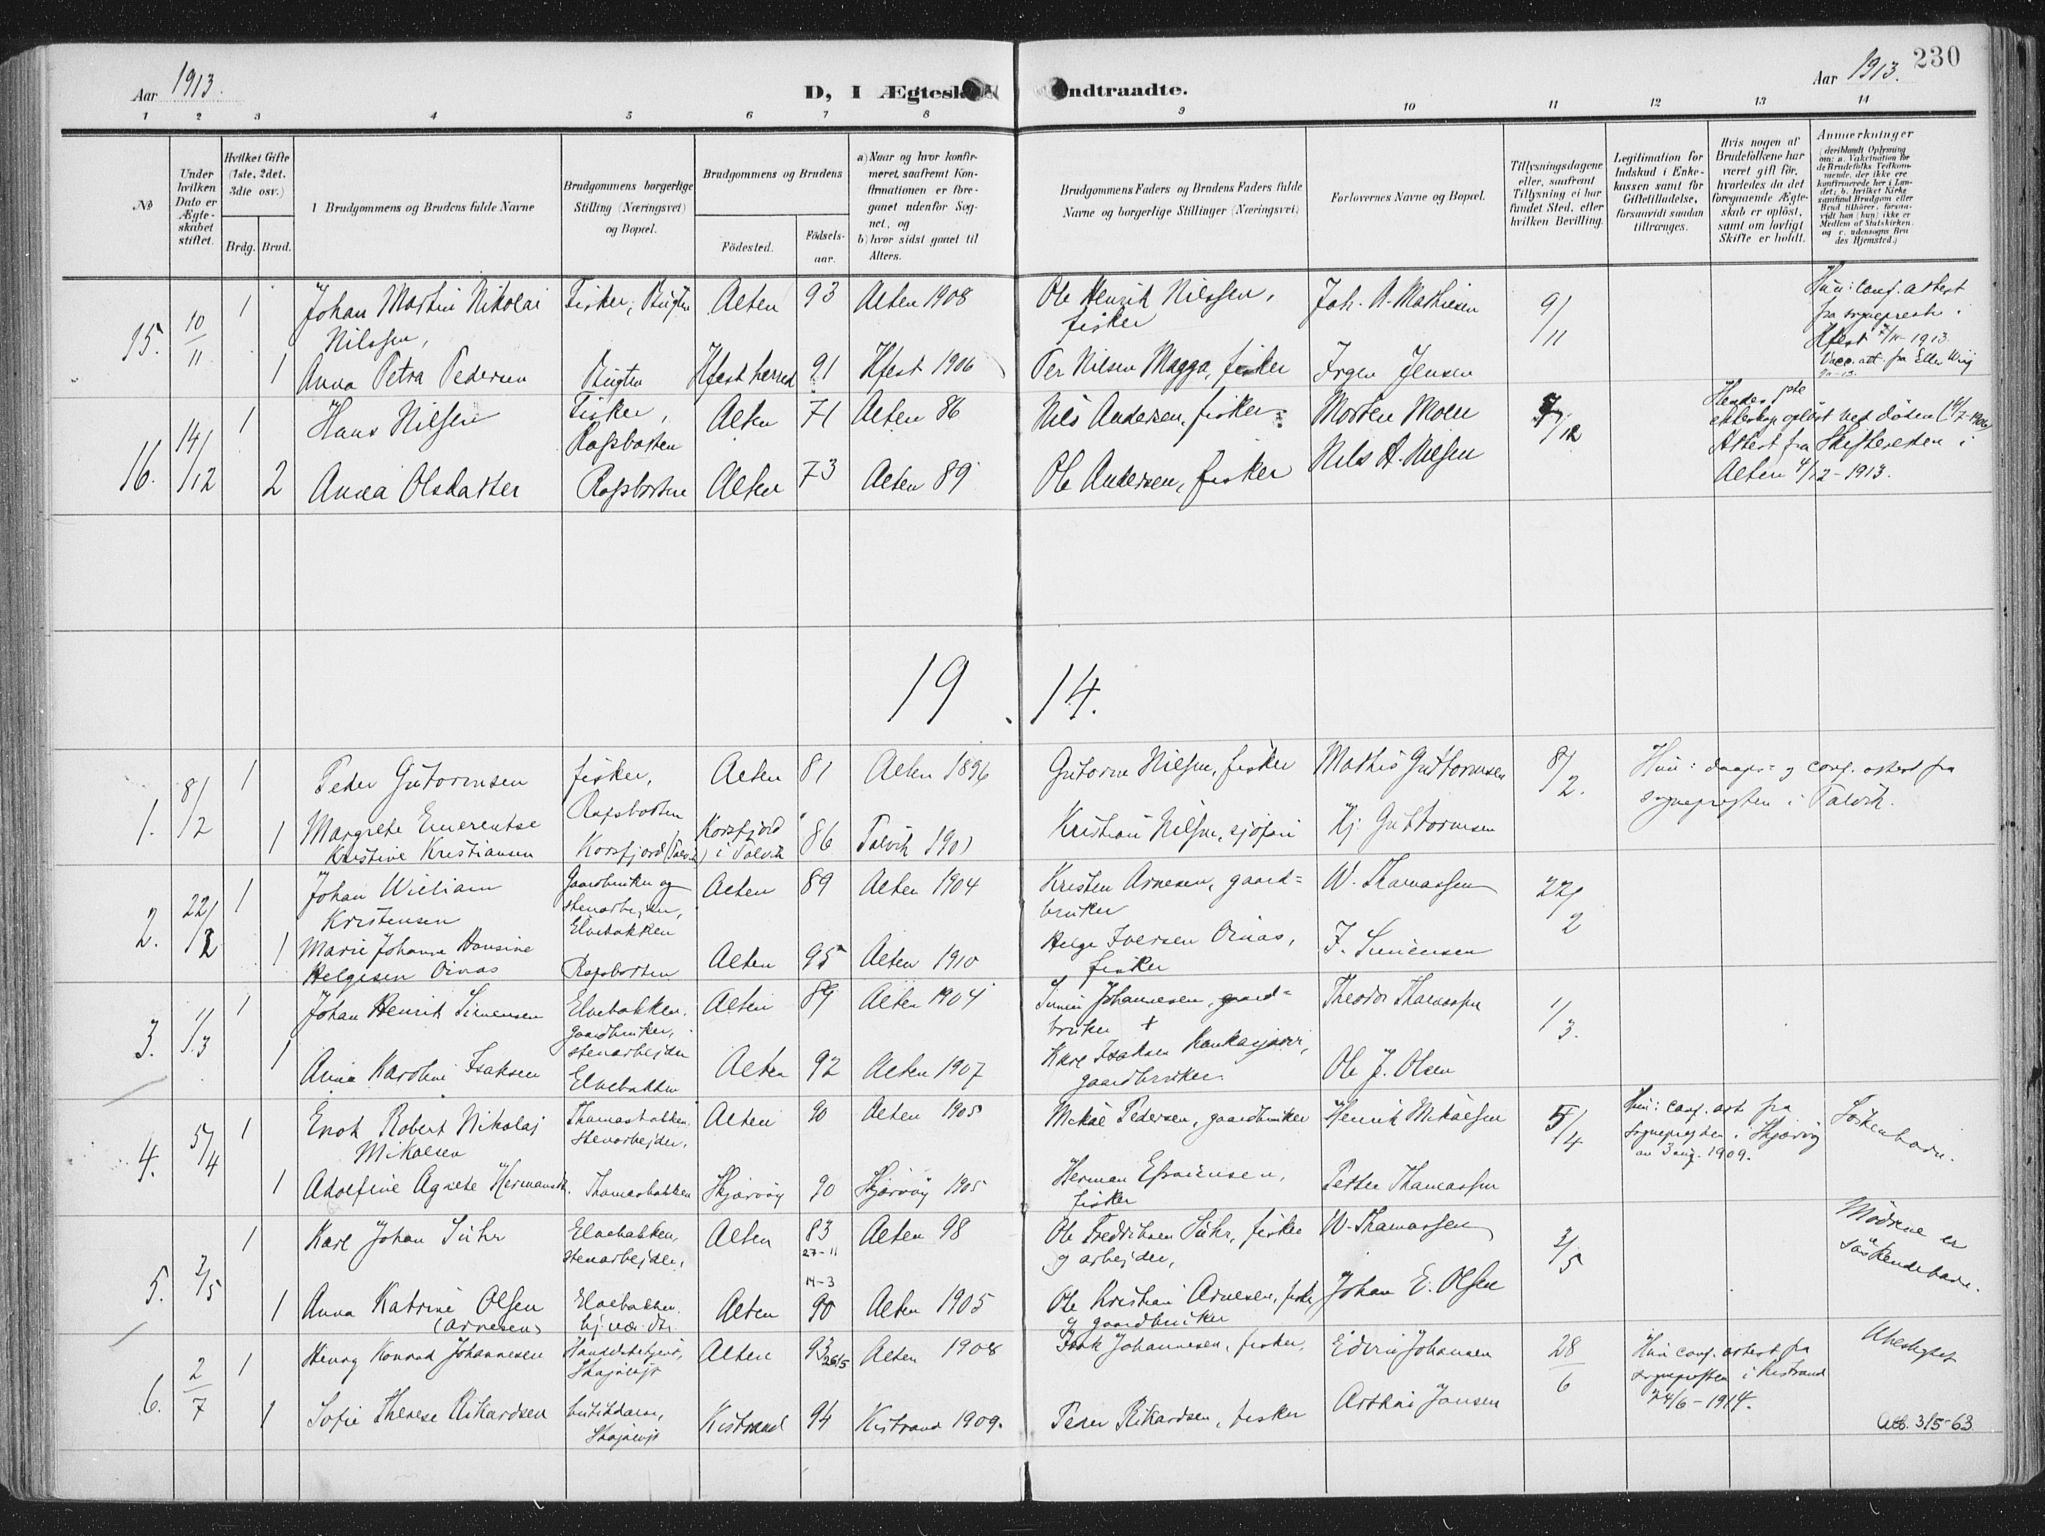 Aar 1913.
D, I Ægtesk
ndtraadte.
Aar 1913.
230
1 2 3 4 5 6 7 8 9 10 11 12 13 14
No
Under hvilken Dato er Ægteskabet stiftet.
Hvilket Gifte (1ste, 2det, 3die osv.)
Brdg. Brud.
1 Brudgommens og Brudens fulde Navne
Brudgommens borgerlige Stilling (Næringsvei) og Bopæl.
Brudgommens og Brudens
Födested. Födselsaar.
a) Naar og hvor konfirmeret, saafremt Konfirmationen er foregaaet udenfor Sognet, og
b) hvor sidst gaaet til Alters.
Brudgommens Faders og Brudens Faders fulde Navne og borgerlige Stillinger (Næringsvei)
Forlovernes Navne og Bopæl.
Tillysningsdagene eller, saafremt Tillysning ei har fundet Sted, efter hvilken Bevilling.
Legitimation for Indskud i Enkekassen samt for Giftetilladelse, forsaavidt saadan tiltrænges.
Hvis nogen af Brudefolkene har været gift før, hvorledes da det foregaaende Ægteskab er oplöst, samt om lovligt Skifte er holdt.
Anmærkninger
15. 10/11 1 Johan Martin Nikolai Nilssen, Fisker, Bugten Alten 93 Alten 1908 Ole Henrik Nilssen, fisker Joh. A. Mathiesen 9/11
Hun: conf. attest fra sognepresten i Hfest 7/11-1913
1 Anna Petra Pedersen Bugten Hfest herred 91 Hfest 1906 Per Nilsen Magga, fisker Irgen Jensen
16. 14/12 1 Hans Nilsen Fisker, Rafsbotten Alten 71 Alten 86 Nils Andersen, fisker Morten Moen 7/12
2 Anna Olsdatter Rafsbotten Alten 73 Alten 89 Ole Andersen, fisker Nils A. Nilsen
Hendes ekteskap opløst ved døden
Attest fra Skifteretten i Alten 4/12-1913.
1914.
1. 8/2 1 Peder Guttormsen fisker, Rafsbotten Alten 81 Alten 1896 Guttorm Nilsen, fisker Mathis Guttormsen 8/2.
Hun: daaps- og conf. attest fra sognepresten i Talvik.
1 Margrete Emerentse Kristine Kristiansen Korsfjord (Talvik) Korsfjord i Talvik 86 Talvik 1901 Kristian Nilsen, Kj. Guttormsen
2. 22/2 1 Johan William Kristensen Gaardbruker og stenarbejder, Elvebakken Alten 89 Alten 1904 Kristen Arnesen, gaardbruker W. Thomassen 22/2
1 Marie Johanne Hansine Helgesen Oinas Rafsbotten Alten 95 Alten 1910 Helge Iversen Oinas, fisker J. Simensen
3. 1/3 1 Johan Henrik Simensen Elvebakken. gaardbruker, stenarbejder Alten 89 Alten 1904 Simen Johannesen, gaardbruker + Theodor Thomassen 1/3.
1 Anna Karoline Isaksen Elvebakken Alten 92 Alten 1907 Karl Isaksen gaardbruker. Ole J. Olsen
4. 5/4 1 Enok Robert Nikolaj Mikalsen Thomasbakken, Stenarbejder, Alten 90 Alten 1905 Mikal Pedersen, gaardbruker Henrik Mikalsen 5/4
Hun: conf. att. fra Sognepresten i Skjærvøy an 3 aug. 1909.
Søskenbarn.
1 Adolfine Agnete Hermansdt. Thomasbakken Skjærvøy 90 Skjærvøy 1905 Herman Efraimsen, fisker Petter Thomassen
5. 3/5 1 Karl Johan Suhr Elvebakken, stenarbejder, Alten 83 27-11 Alten 98 Ole Fredriksen Suhr, fisker og arbejder, W. Thomassen 3/5
Mödrene er søskendebarn.
1 Anna Katrine Olsen (Arnesen) Elvebakken. Alten 14-3 90 Alten 1905 Ole Kristian Arnesen, fisker og gaardbruker Johan E. Olsen
6. 2/7 1 Henry Konrad Johannesen Alten 93 26/5 Alten 1908 Isak Johannesen, fisker, Edvin Johansen 28/6
Hun conf. attest fra sognepresten i Kistrand 24/6-1914.
Ubeslegtet
1 Sofie Therese Rikardsen butikdame, Kistrand 94 Kistrand 1909. Peder Rikardsen, fisker Arthur Jansen
Atb. 3/5-63